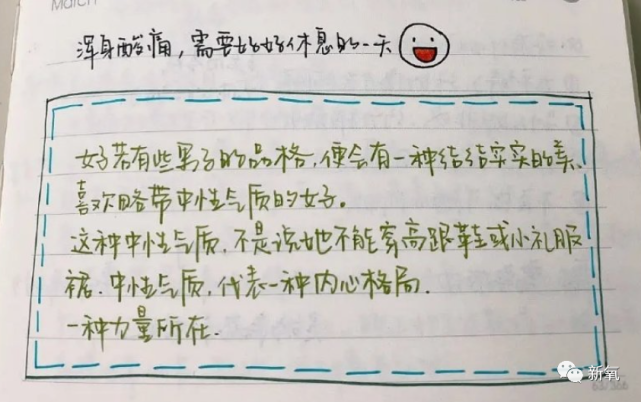 March
浑身酸痛，需要好好休息的一天
女子若有些男子的品格，便会有一种结结实实的美、
喜欢略带中性气质的女子。
这种中性气质，不是说她不能穿高跟鞋或小礼服
裙．中性气质，代表一种内心格局．
一种力量所在．
新氧